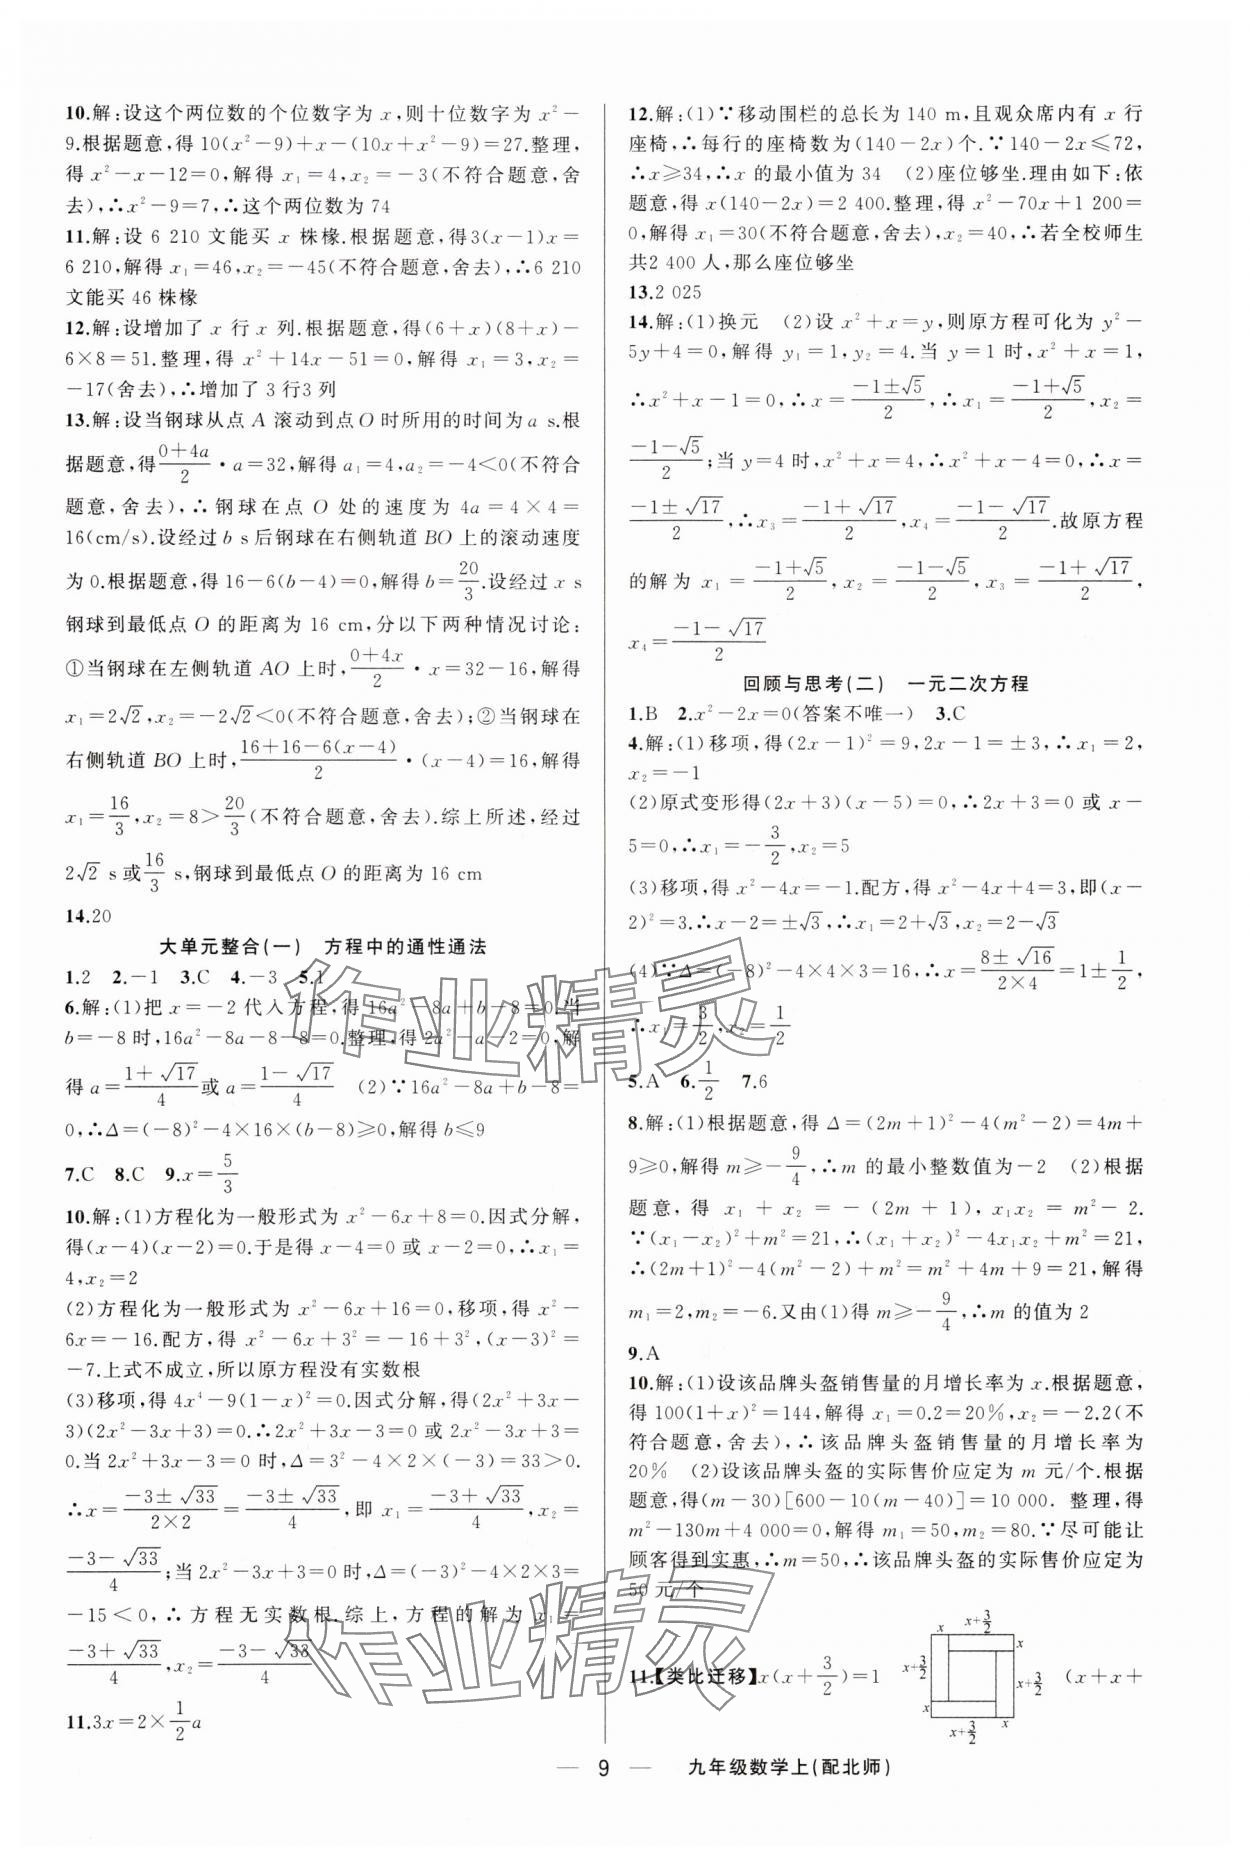 10.解:设这个两位数的个位数字为 x,则十位数字为 x²-
9.根据题意,得 10(x²-9)+x-(10x+x²-9)=27.整理,
得 x²-x-12=0,解得 x₁=4,x₂=-3(不符合题意,舍
去),∴x²-9=7,∴这个两位数为 74
11.解:设 6 210 文能买 x 株椽.根据题意,得3(x-1)x=
6 210,解得 x₁=46,x₂=-45(不符合题意,舍去),∴6 210
文能买 46 株椽
12.解:设增加了 x 行 x 列.根据题意,得(6+x)(8+x)-
6×8=51.整理,得 x²+14x-51=0,解得 x₁=3,x₂=
-17(舍去),∴增加了 3 行3 列
13.解:设当钢球从点 A 滚动到点 O 时所用的时间为 a s.根
据题意,得(0+4a)/2·a=32,解得 a₁=4,a₂=-4<0(不符合
题意,舍去),∴钢球在点 O 处的速度为 4a=4×4=
16(cm/s).设经过 b s后钢球在右侧轨道 BO 上的滚动速度
为 0.根据题意,得 16-6(b-4)=0,解得 b=20/3.设经过 x s
钢球到最低点 O 的距离为 16 cm,分以下两种情况讨论:
①当钢球在左侧轨道 AO 上时,(0+4x)/2·x=32-16,解得
x₁=2√2,x₂=-2√2<0(不符合题意,舍去);②当钢球在
右侧轨道 BO 上时,(16+16-6(x-4))/2·(x-4)=16,解得
x₁=16/3,x₂=8>20/3(不符合题意,舍去).综上所述,经过
2√2 s 或16/3 s,钢球到最低点 O 的距离为 16 cm
14.20
大单元整合(一) 方程中的通性通法
1.2 2.-1 3.C 4.-3 5.1
6.解:(1)把 x=-2 代入方程,得 16a²-8a+b-8=0.当
b=-8 时,16a²-8a-8-8=0.整理,得 2a²-a-2=0,解
得 a=(1+√17)/4或 a=(1-√17)/4 (2)∵16a²-8a+b-8=
0,∴Δ=(-8)²-4×16×(b-8)≥0,解得 b≤9
7.C 8.C 9.x=5/3
10.解:(1)方程化为一般形式为 x²-6x+8=0.因式分解,
得(x-4)(x-2)=0.于是得 x-4=0 或 x-2=0,∴x₁=
4,x₂=2
(2)方程化为一般形式为 x²-6x+16=0,移项,得 x²-
6x=-16.配方,得 x²-6x+3²=-16+3²,(x-3)²=
-7.上式不成立,所以原方程没有实数根
(3)移项,得 4x⁴-9(1-x)²=0.因式分解,得(2x²+3x-
3)(2x²-3x+3)=0.∴2x²+3x-3=0 或 2x²-3x+3=
0.当 2x²+3x-3=0 时,Δ=3²-4×2×(-3)=33>0.
∴x=(-3±√33)/(2×2)=(-3±√33)/4,即 x₁=(-3+√33)/4,x₂=
(-3-√33)/4;当 2x²-3x+3=0 时,Δ=(-3)²-4×2×3=
-15<0,∴方程无实数根.综上,方程的解为 x₁=
(-3+√33)/4,x₂=(-3-√33)/4
11.3x=2×1/2a
12.解:(1)∵移动围栏的总长为 140 m,且观众席内有 x 行
座椅,∴每行的座椅数为(140-2x)个.∵140-2x≤72,
∴x≥34,∴x 的最小值为 34 (2)座位够坐.理由如下:依
题意,得 x(140-2x)=2 400.整理,得 x²-70x+1 200=
0,解得 x₁=30(不符合题意,舍去),x₂=40,∴若全校师生
共2 400 人,那么座位够坐
13.2 025
14.解:(1)换元 (2)设 x²+x=y,则原方程可化为 y²-
5y+4=0,解得 y₁=1,y₂=4.当 y=1 时,x²+x=1,
∴x²+x-1=0,∴x=(-1±√5)/2,∴x₁=(-1+√5)/2,x₂=
(-1-√5)/2;当 y=4 时,x²+x=4,∴x²+x-4=0,∴x=
(-1±√17)/2,∴x₃=(-1+√17)/2,x₄=(-1-√17)/2.故原方程
的解为 x₁=(-1+√5)/2,x₂=(-1-√5)/2,x₃=(-1+√17)/2,
x₄=(-1-√17)/2
回顾与思考(二) 一元二次方程
1.B 2.x²-2x=0(答案不唯一) 3.C
4.解:(1)移项,得(2x-1)²=9,2x-1=±3,∴x₁=2,
x₂=-1
(2)原式变形得(2x+3)(x-5)=0,∴2x+3=0 或 x-
5=0,∴x₁=-3/2,x₂=5
(3)移项,得 x²-4x=-1.配方,得 x²-4x+4=3,即(x-
2)²=3.∴x-2=±√3,∴x₁=2+√3,x₂=2-√3
(4)∵Δ=(-8)²-4×4×3=16,∴x=(8±√16)/(2×4)=1±1/2,
∴x₁=3/2,x₂=1/2
5.A 6.1/2 7.6
8.解:(1)根据题意,得 Δ=(2m+1)²-4(m²-2)=4m+
9≥0,解得 m≥-9/4,∴m 的最小整数值为-2 (2)根据
题意,得 x₁+x₂=-(2m+1),x₁x₂=m²-2.
∵(x₁-x₂)²+m²=21,∴(x₁+x₂)²-4x₁x₂+m²=21,
∴(2m+1)²-4(m²-2)+m²=m²+4m+9=21,解得
m₁=2,m₂=-6.又由(1)得 m≥-9/4,∴m 的值为 2
9.A
10.解:(1)设该品牌头盔销售量的月增长率为 x.根据题意,
得 100(1+x)²=144,解得 x₁=0.2=20%,x₂=-2.2(不
符合题意,舍去),∴该品牌头盔销售量的月增长率为
20% (2)设该品牌头盔的实际售价应定为 m 元/个.根据
题意,得(m-30)[600-10(m-40)]=10 000. 整理,得
m²-130m+4 000=0,解得 m₁=50,m₂=80.∵尽可能让
顾客得到实惠,∴m=50,∴该品牌头盔的实际售价应定为
50 元/个
11.【类比迁移】x(x+3/2)=1 (x+x+
x x+3/2
x
x+3/2
x+3/2
x
x+3/2 x
— 9 — 九年级数学上(配北师)
作业精灵
作业精灵